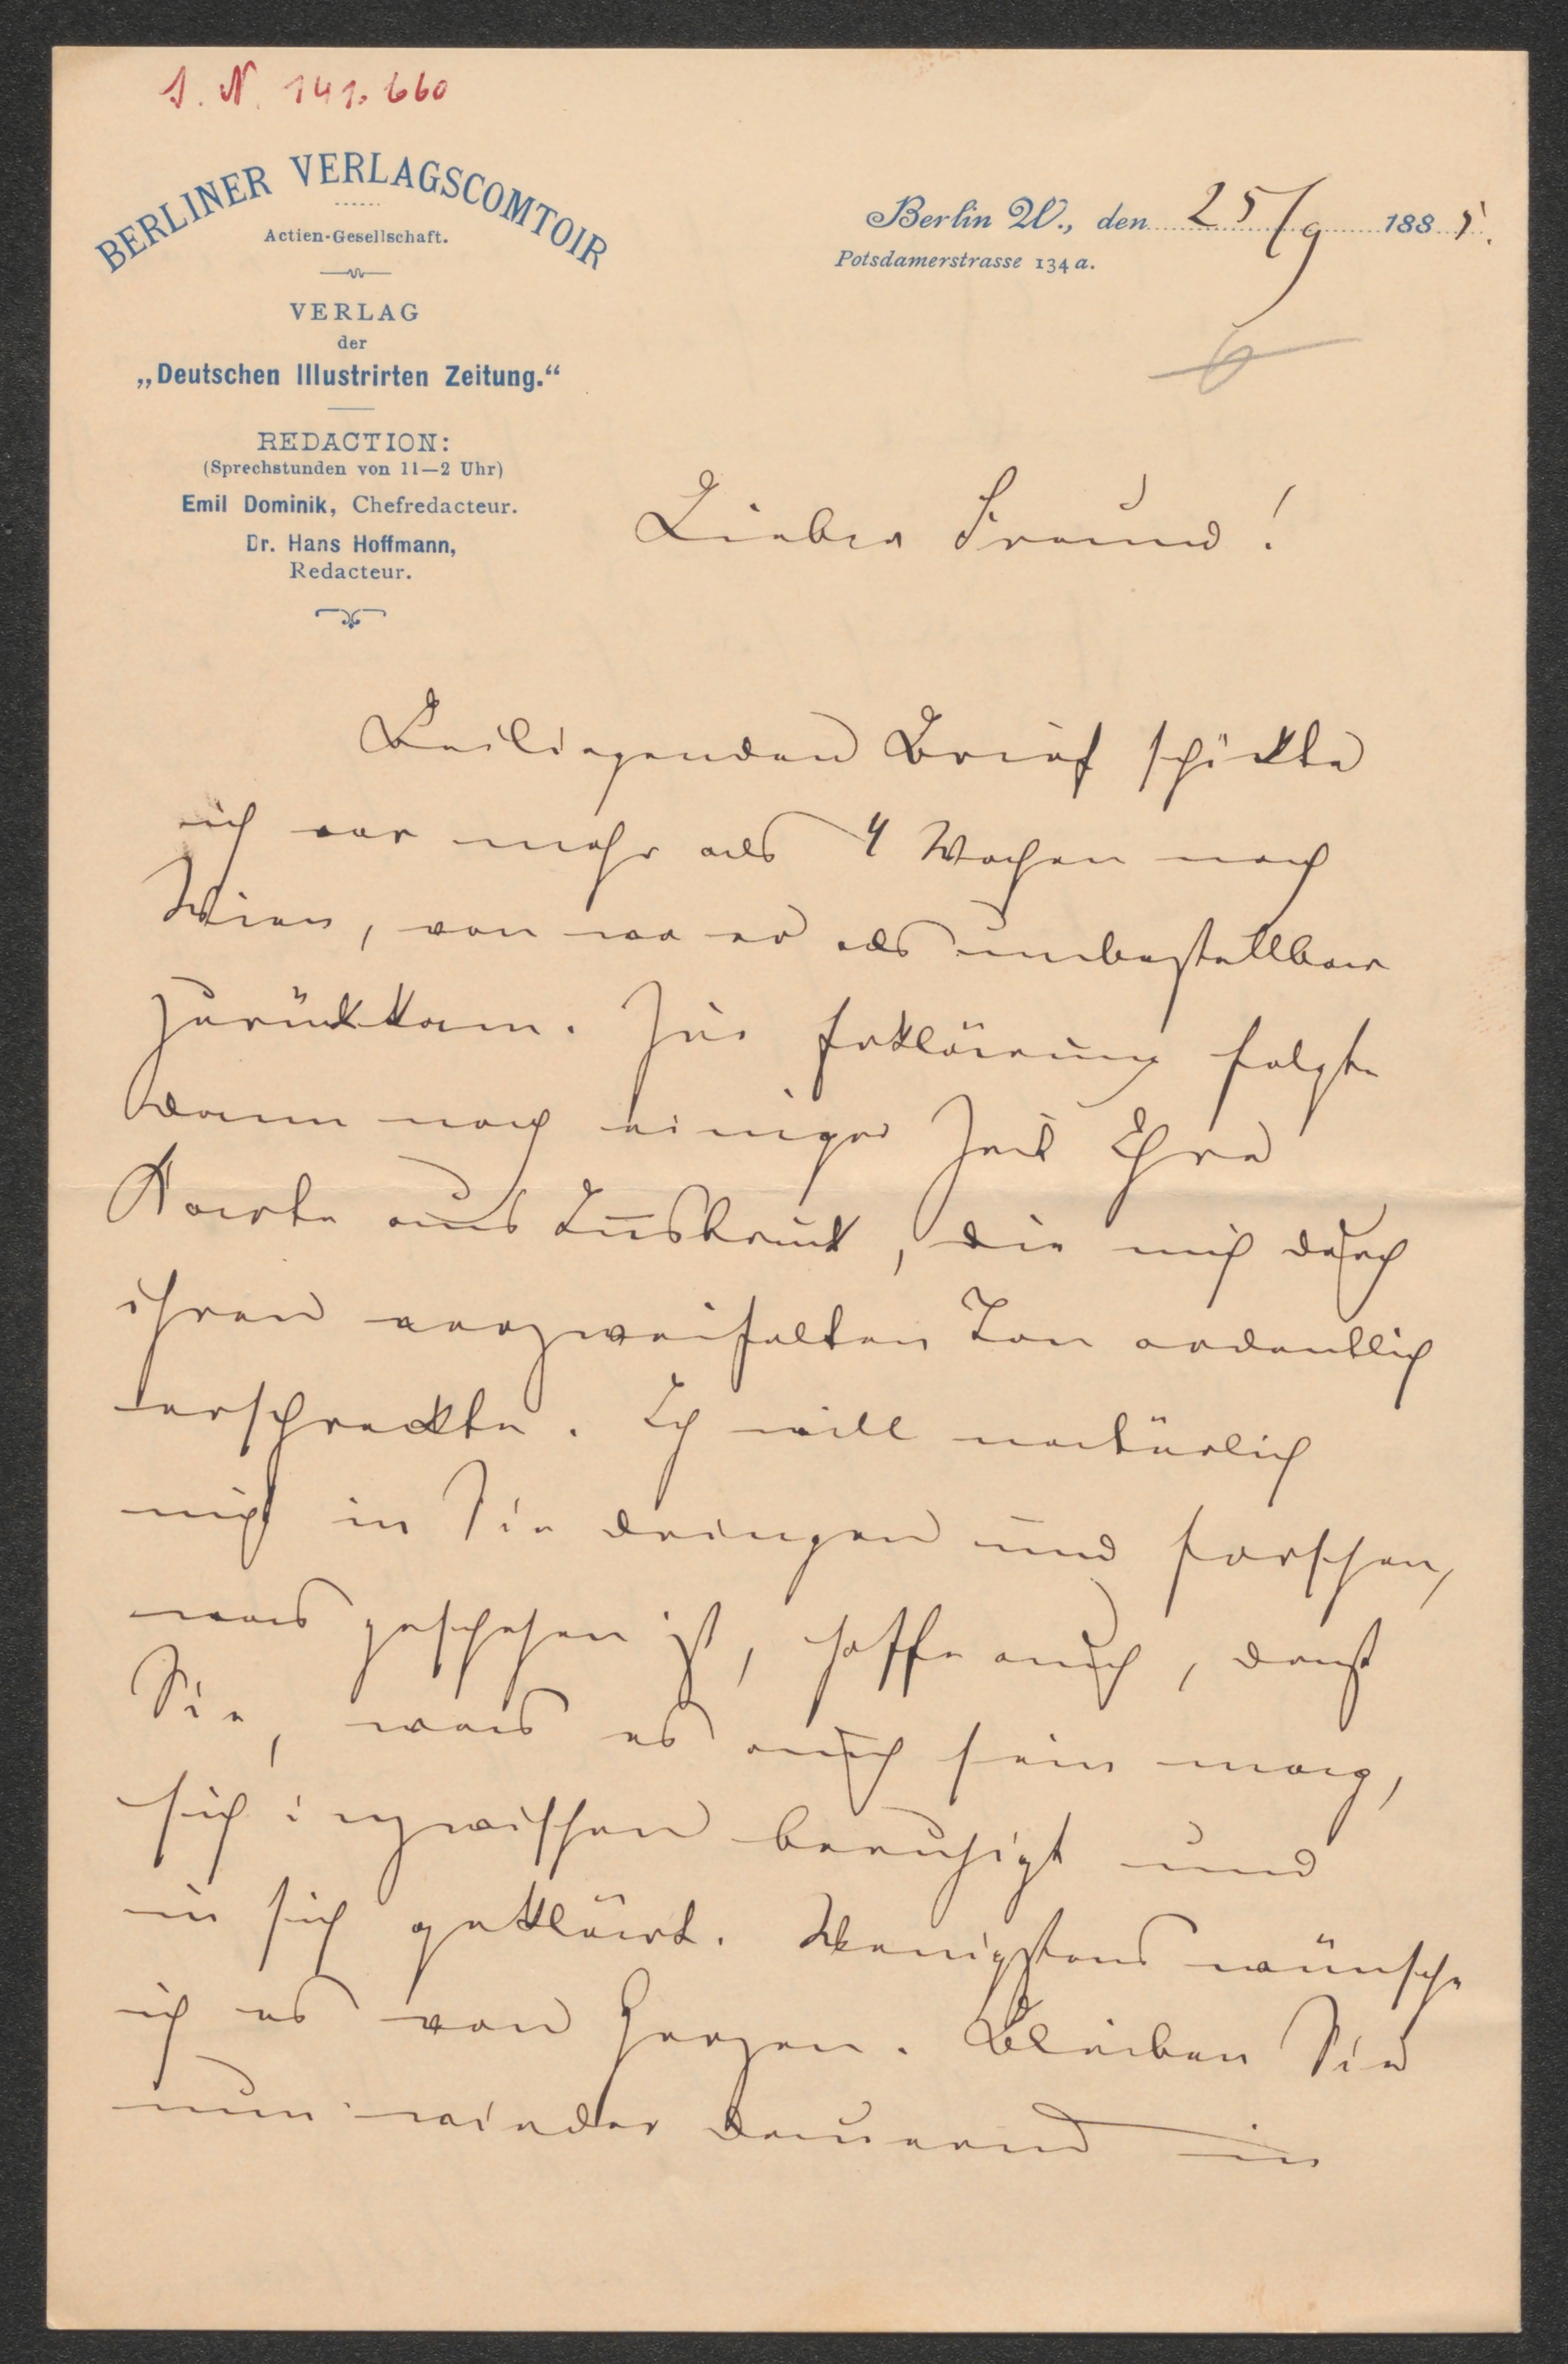 I. N. 141.660
BERLINER VERLAGSCOMTOIR
Actien-Gesellschaft.
VERLAG
der
„Deutschen Illustrirten Zeitung.“
REDACTION:
(Sprechstunden von 11—2 Uhr)
Emil Dominik, Chefredacteur.
Dr. Hans Hoffmann,
Redacteur.
Berlin W., den 25/9 1885.
Potsdamerstrasse 134 a.
6
Lieber Freund!
Beiliegenden Brief schickte
ich vor mehr als 4 Wochen nach
Wien, von wo er als unbestellbar
zurückkam. Zur Erklärung folgte
dann nach einiger Zeit Ihre
Karte aus Innsbruck, die mich durch
ihren verzweifelten Ton ordentlich
erschreckte. Ich will natürlich
nicht in Sie dringen und forschen,
was geschehen ist, hoffe auch, daß
Sie, was es auch sein mag,
sich inzwischen beruhigt und
in sich geklärt. Wenigstens wünsche
ich es von Herzen. Bleiben Sie
nun wieder dauernd in